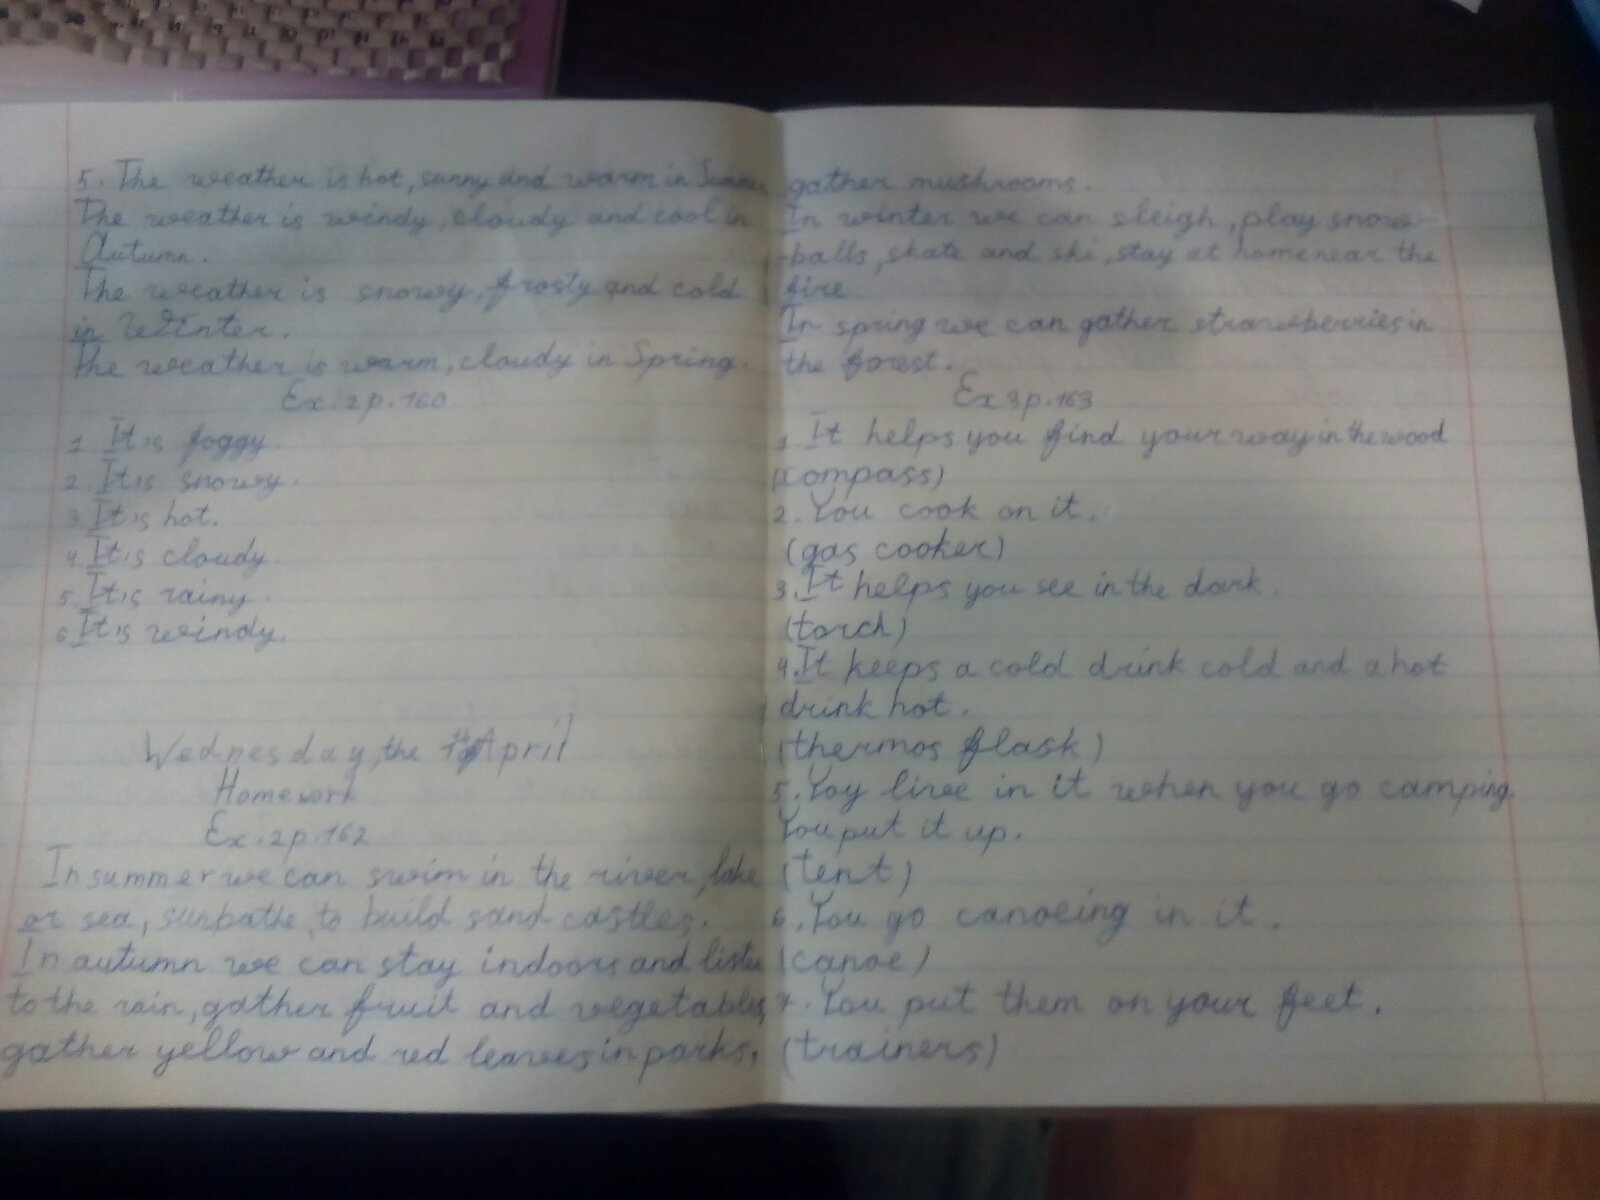 5. The weather is hot, sunny and warm in Summer
The weather is windy, cloudy and cool in
Autumn.
The weather is snowy, frosty and cold
in Winter.
The weather is warm, cloudy in Spring.
Ex. 2 p. 160
1 It is foggy.
2. It is snowy.
3. It is hot.
4 It is cloudy
5. It is rainy.
6 It is windy.
Wednesday, the April
Homework
Ex. 2 p. 162
In summer we can swim in the river, lake
or sea, sunbathe, to build sand castles.
In autumn we can stay indoors and listen
to the rain, gather fruit and vegetables,
gather yellow and red leaves in parks,
gather mushrooms.
In winter we can sleigh, play snow-
-balls, skate and ski, stay at home near the
fire
In spring we can gather strawberries in
the forest.
Ex 3 p. 163
1. It helps you find your way in the wood
(compass)
2. You cook on it.
(gas cooker)
3. It helps you see in the dark.
(torch)
4. It keeps a cold drink cold and a hot
drink hot.
(thermos flask)
5. Yoy live in it when you go camping.
You put it up.
(tent)
6. You go canoeing in it.
(canoe)
7. You put them on your feet.
(trainers)